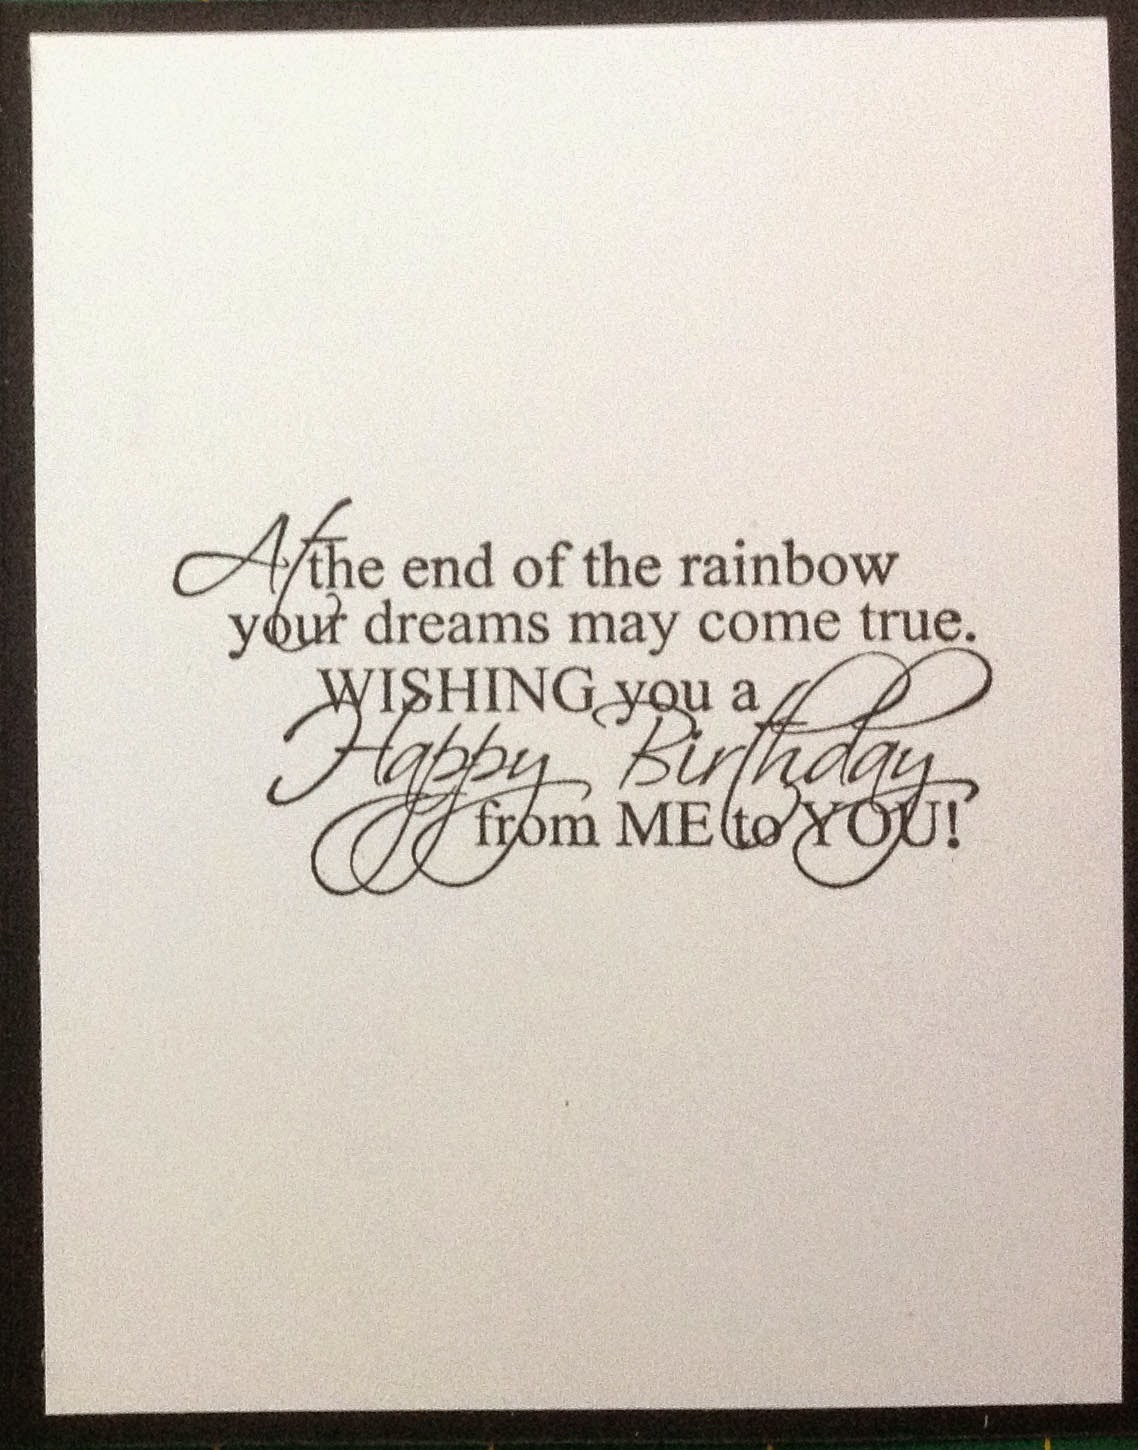 At the end of the rainbow
your dreams may come true.
WISHING you a
Happy Birthday
from ME to YOU!